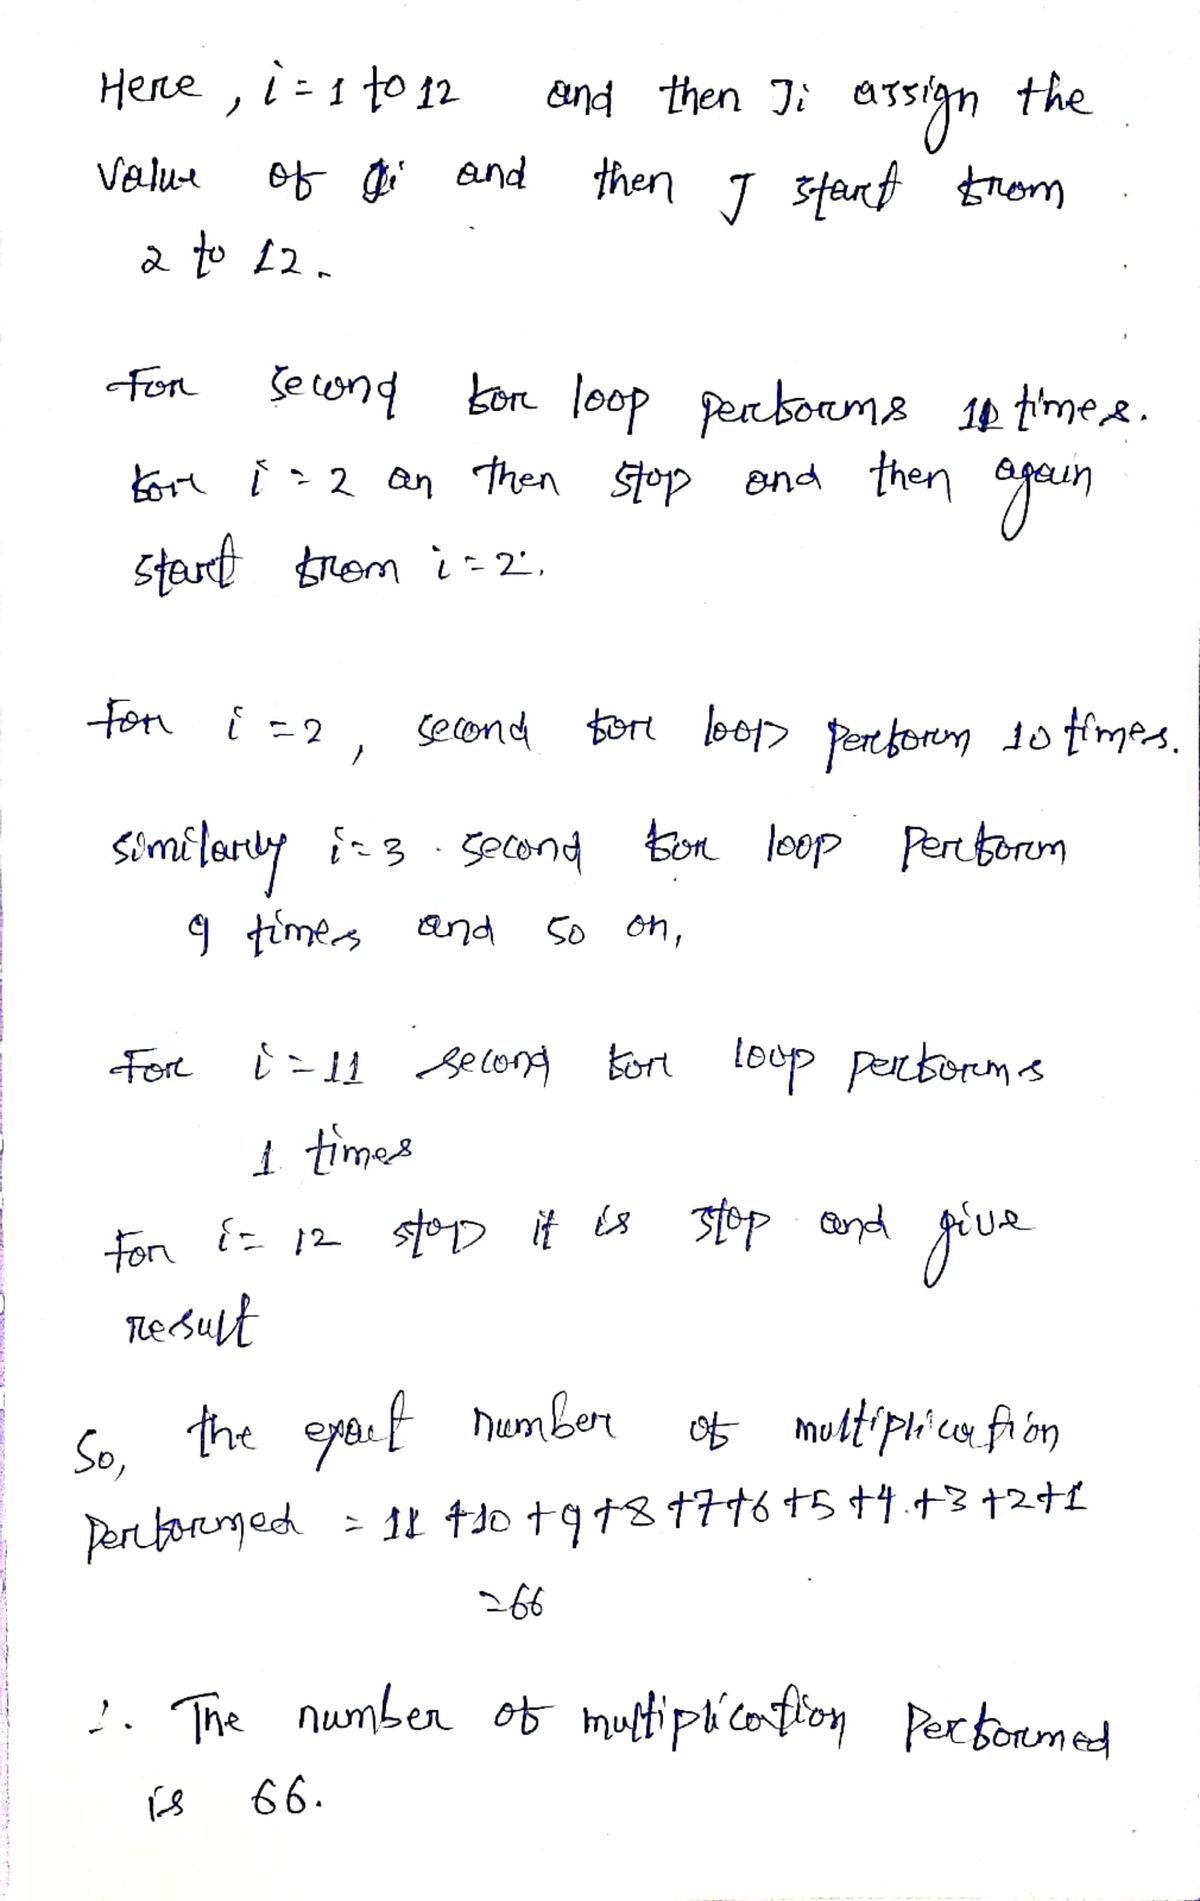 Here, i = 1 to 12 and then Ji assign the
value of gi and then J start from
2 to 12.
For second for loop performs 11 times.
for i = 2 an then stop and then again
start from i = 2.
For i = 2, second for loop perform 10 times.
similarly i = 3. second for loop perform
9 times and so on,
For i = 11 second for loop performs
1 times
For i = 12 stop it is stop and give
result
So, the exact number of multiplication
performed = 11 + 10 + 9 + 8 + 7 + 6 + 5 + 4 + 3 + 2 + 1
= 66
∴ The number of multiplication performed
is 66.